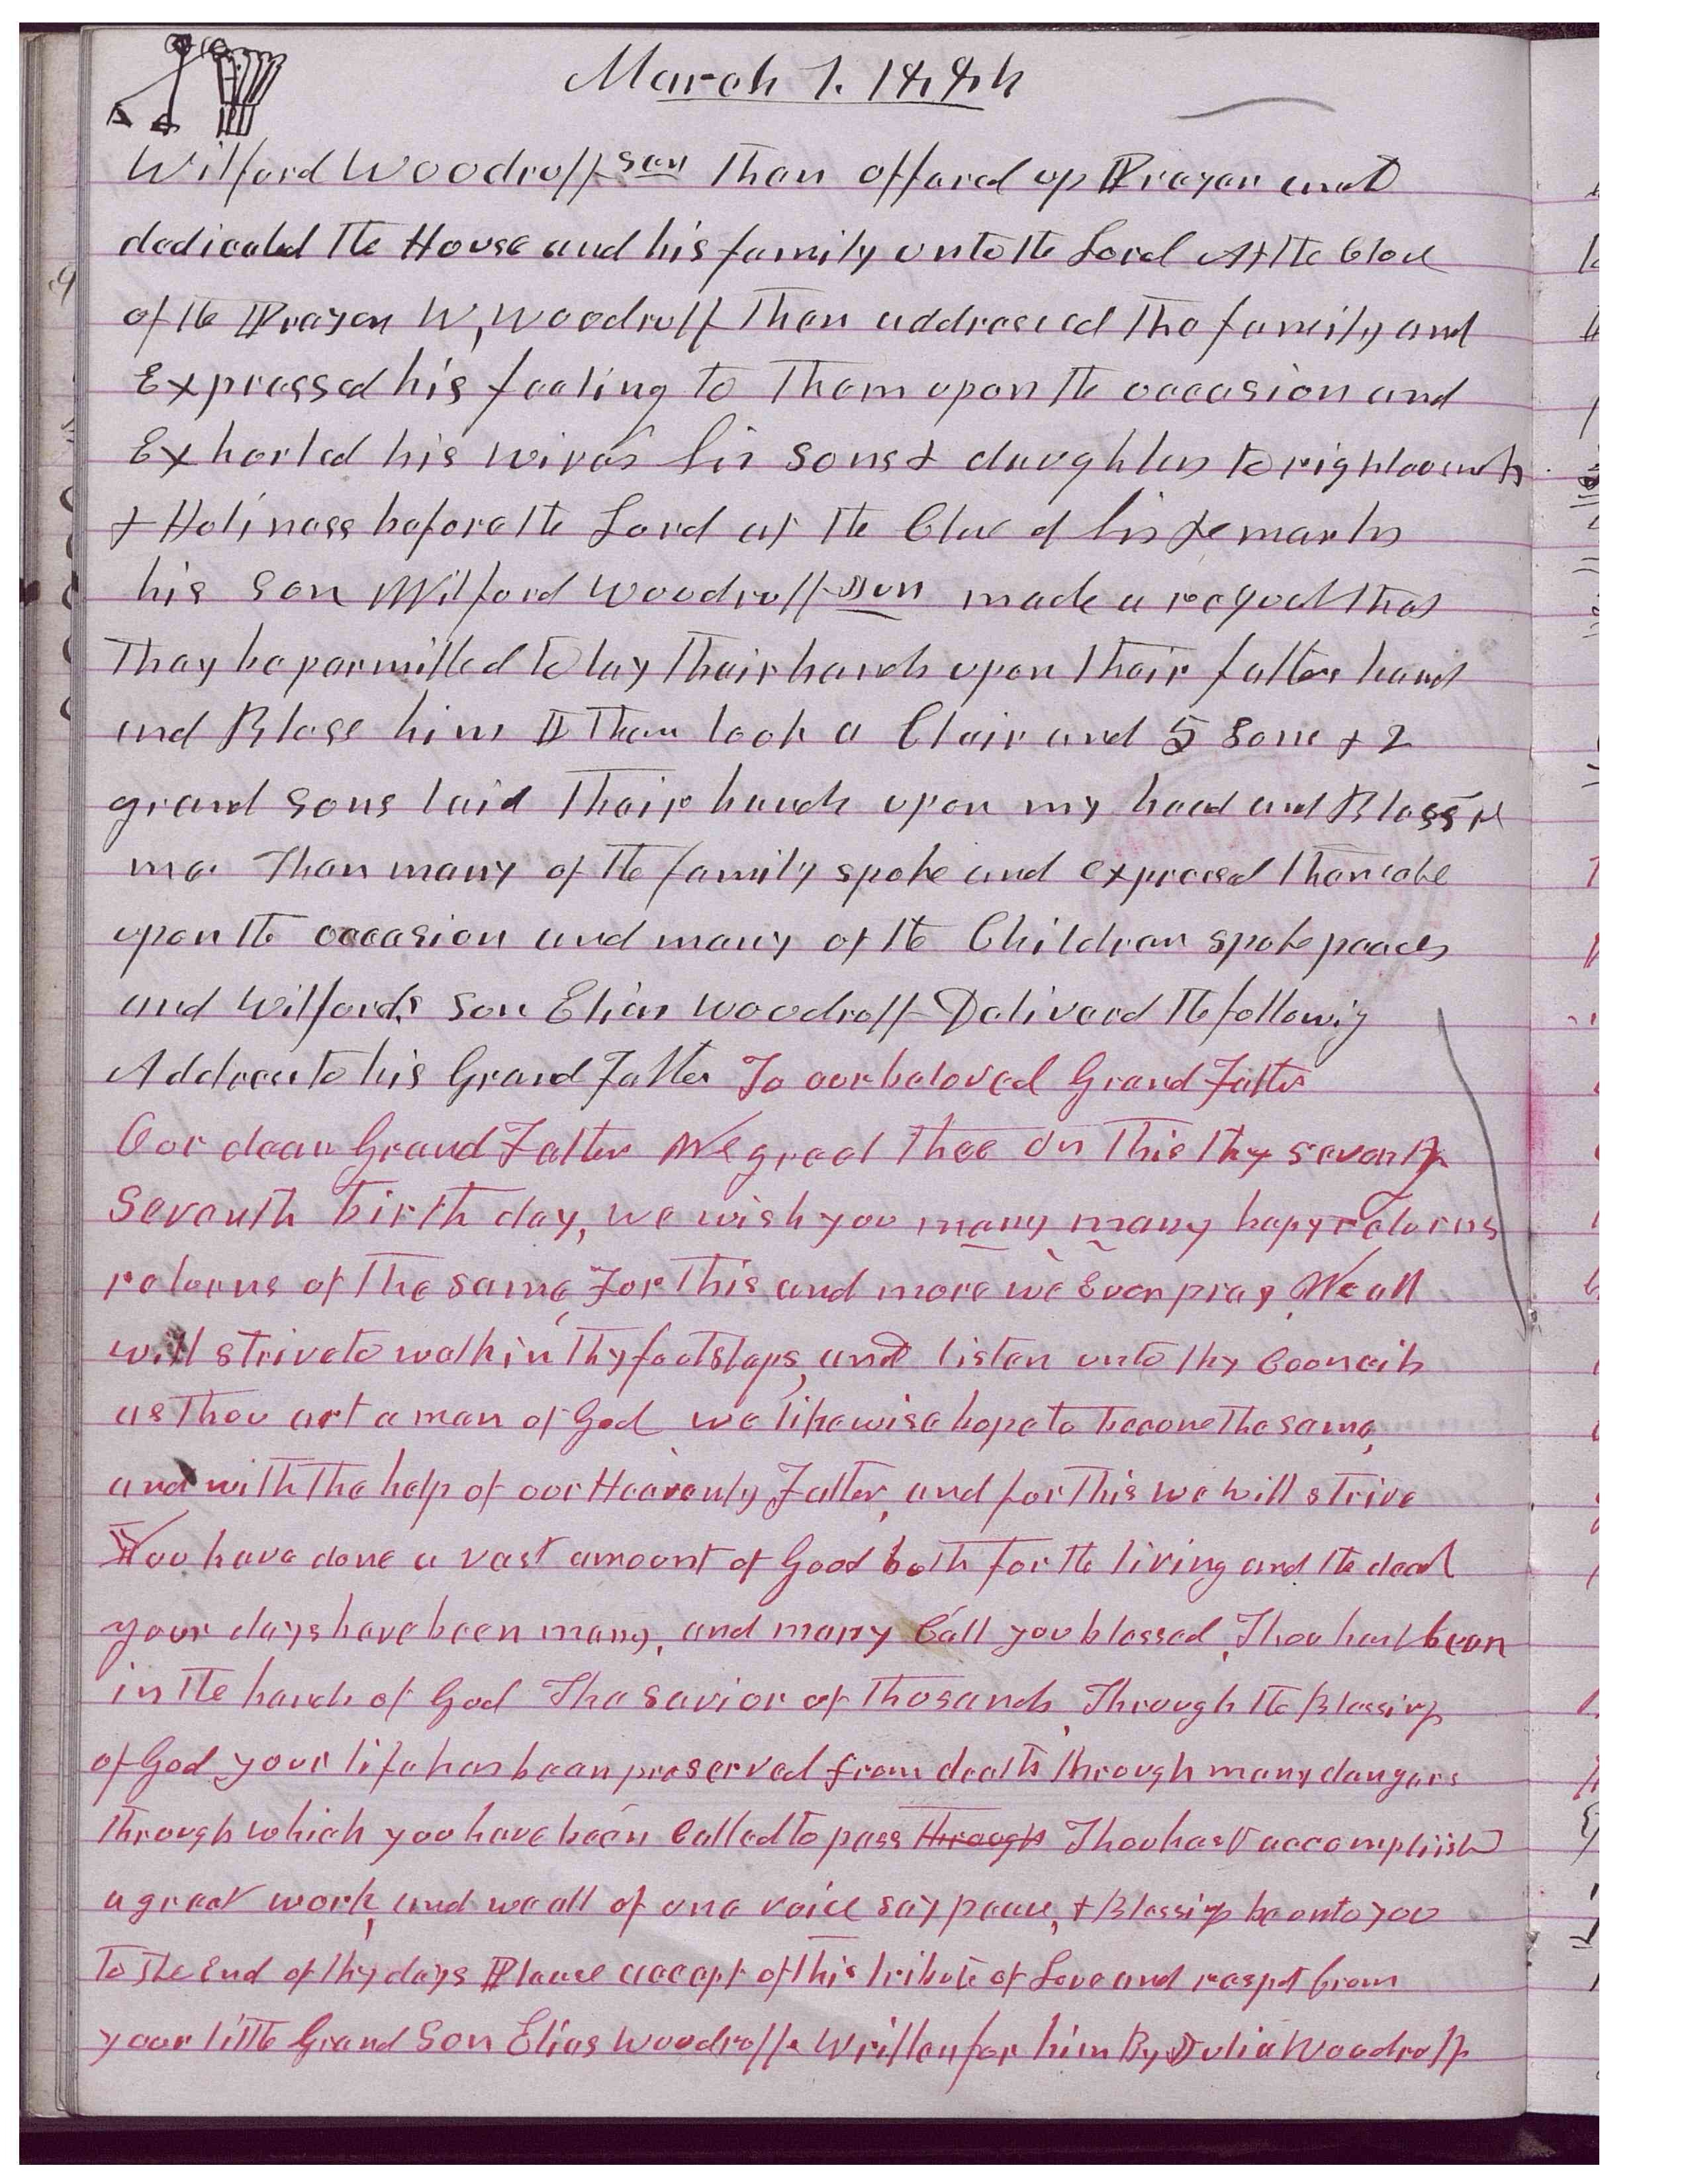 March 1. 1884
Wilford Woodruff son Then offered up Prayer and
dedicated the House and his family unto the Lord At the Close
of the Prayer W, Woodruff Then addressed the family and
Expressed his feeling to Them upon the occasion and
Exhorted his wives his sons & daughters to righteousness
& Holiness before the Lord at the Close of his Remarks
his son Wilford Woodruff Jun made a request that
They be permitted to lay Their hands upon their fathers head
and Bless him I Then took a Chair and 5 Sons & 2
grand sons laid Their hands upon my head and Blessed
me. Then many of the family spoke and expressed themselves
upon the occasion and many of the Children spoke peaces
and Wilfords son Elias Woodruff Deliverd the following
Address to his Grand Father To our beloved Grand Father
Our dear Grand Father We greet Thee on This thy seventy
Seventh birth day, we wish you many many happy returns
returns of the same, For This and more we Ever pray, We all
will strive to walk in Thy footsteps, and listen unto thy Councils
as Thou art a man of God we likewise hope to become the same,
and with the help of our Heavenly Father, and for This we will strive
You have done a vast amount of Good both for the living and the dead
your days have been many, and many Call you blessed, Thou hast been
in the hands of God The savior of Thosands, Through the Blessing
of God your life has been preserved from death through many dangers
Through which you have been Called to pass through Thou hast accomplish
a great work, and we all of one voice say peace, & Blessing be unto you
To the End of thy days Please accept of this tribute of Love and respet from
your little Grand Son Elias Woodruff. Written for him By Julia Woodruff